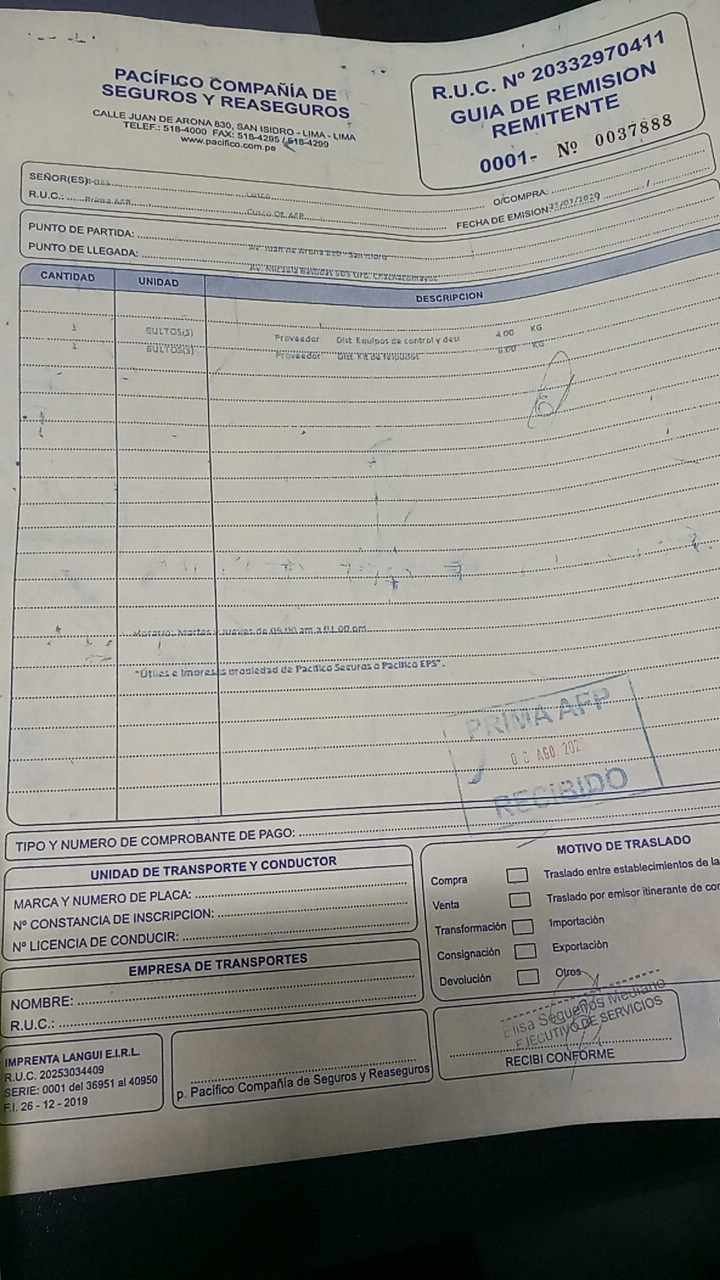 PACÍFICO COMPAÑÍA DE
SEGUROS Y REASEGUROS
CALLE JUAN DE ARONA 830, SAN ISIDRO - LIMA - LIMA
TELEF.: 518-4000 FAX: 518-4295 / 518-4299
www.pacifico.com.pe
R.U.C. Nº 20332970411
GUIA DE REMISION
REMITENTE
0001- Nº 0037888
SEÑOR(ES):
Cusco
R.U.C.: Prima AFP
Cusco Of. AFP
O/COMPRA:
FECHA DE EMISION
PUNTO DE PARTIDA: Av. Juan de Arona San Isidro
PUNTO DE LLEGADA: Av.
CANTIDAD UNIDAD DESCRIPCION
1 BULTOS(S) Proveedor Dist. Equipos de control y desi 4.00 KG
1 BULTOS(S) Proveedor Dist. Kit de 6.00 KG
Horario: Martes Jueves de am a 01:00 pm
"Útiles e Impresos propiedad de Pacífico Seguros o Pacífico EPS".
PRIMA AFP
AGO. 202
RECIBIDO
TIPO Y NUMERO DE COMPROBANTE DE PAGO:
UNIDAD DE TRANSPORTE Y CONDUCTOR
MARCA Y NUMERO DE PLACA:
Nº CONSTANCIA DE INSCRIPCION:
Nº LICENCIA DE CONDUCIR:
EMPRESA DE TRANSPORTES
NOMBRE:
R.U.C.:
MOTIVO DE TRASLADO
Compra
Venta
Transformación
Consignación
Devolución
Traslado entre establecimientos de la
Traslado por emisor itinerante de
Importación
Exportación
Otros
IMPRENTA LANGUI E.I.R.L.
R.U.C. 20253034409
SERIE: 0001 del 36951 al 40950
F.I. 26 - 12 - 2019
p. Pacífico Compañía de Seguros y Reaseguros
Elisa Segueños Medrano
EJECUTIVO DE SERVICIOS
RECIBI CONFORME